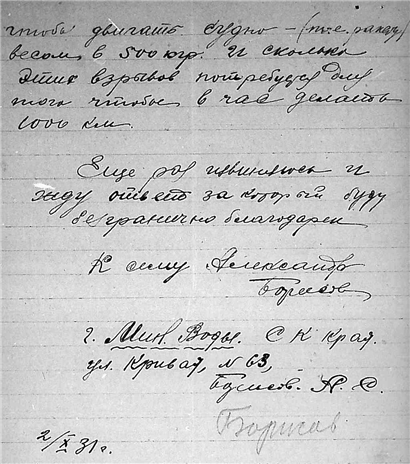 чтобы двигать судно – (т.е. ракету)
весом в 500 кгр. И сколько
этих взрывов потребуется для
того чтобы в час делать
1000 км.
Еще раз извиняюсь и
жду ответ за который буду
безгранично благодарен
К сему Александр
Борисов
г. Мин. Воды. С К Край
ул. Кривая, № 63,
Борисов. А. С.
Борисов
2/X 31 г.